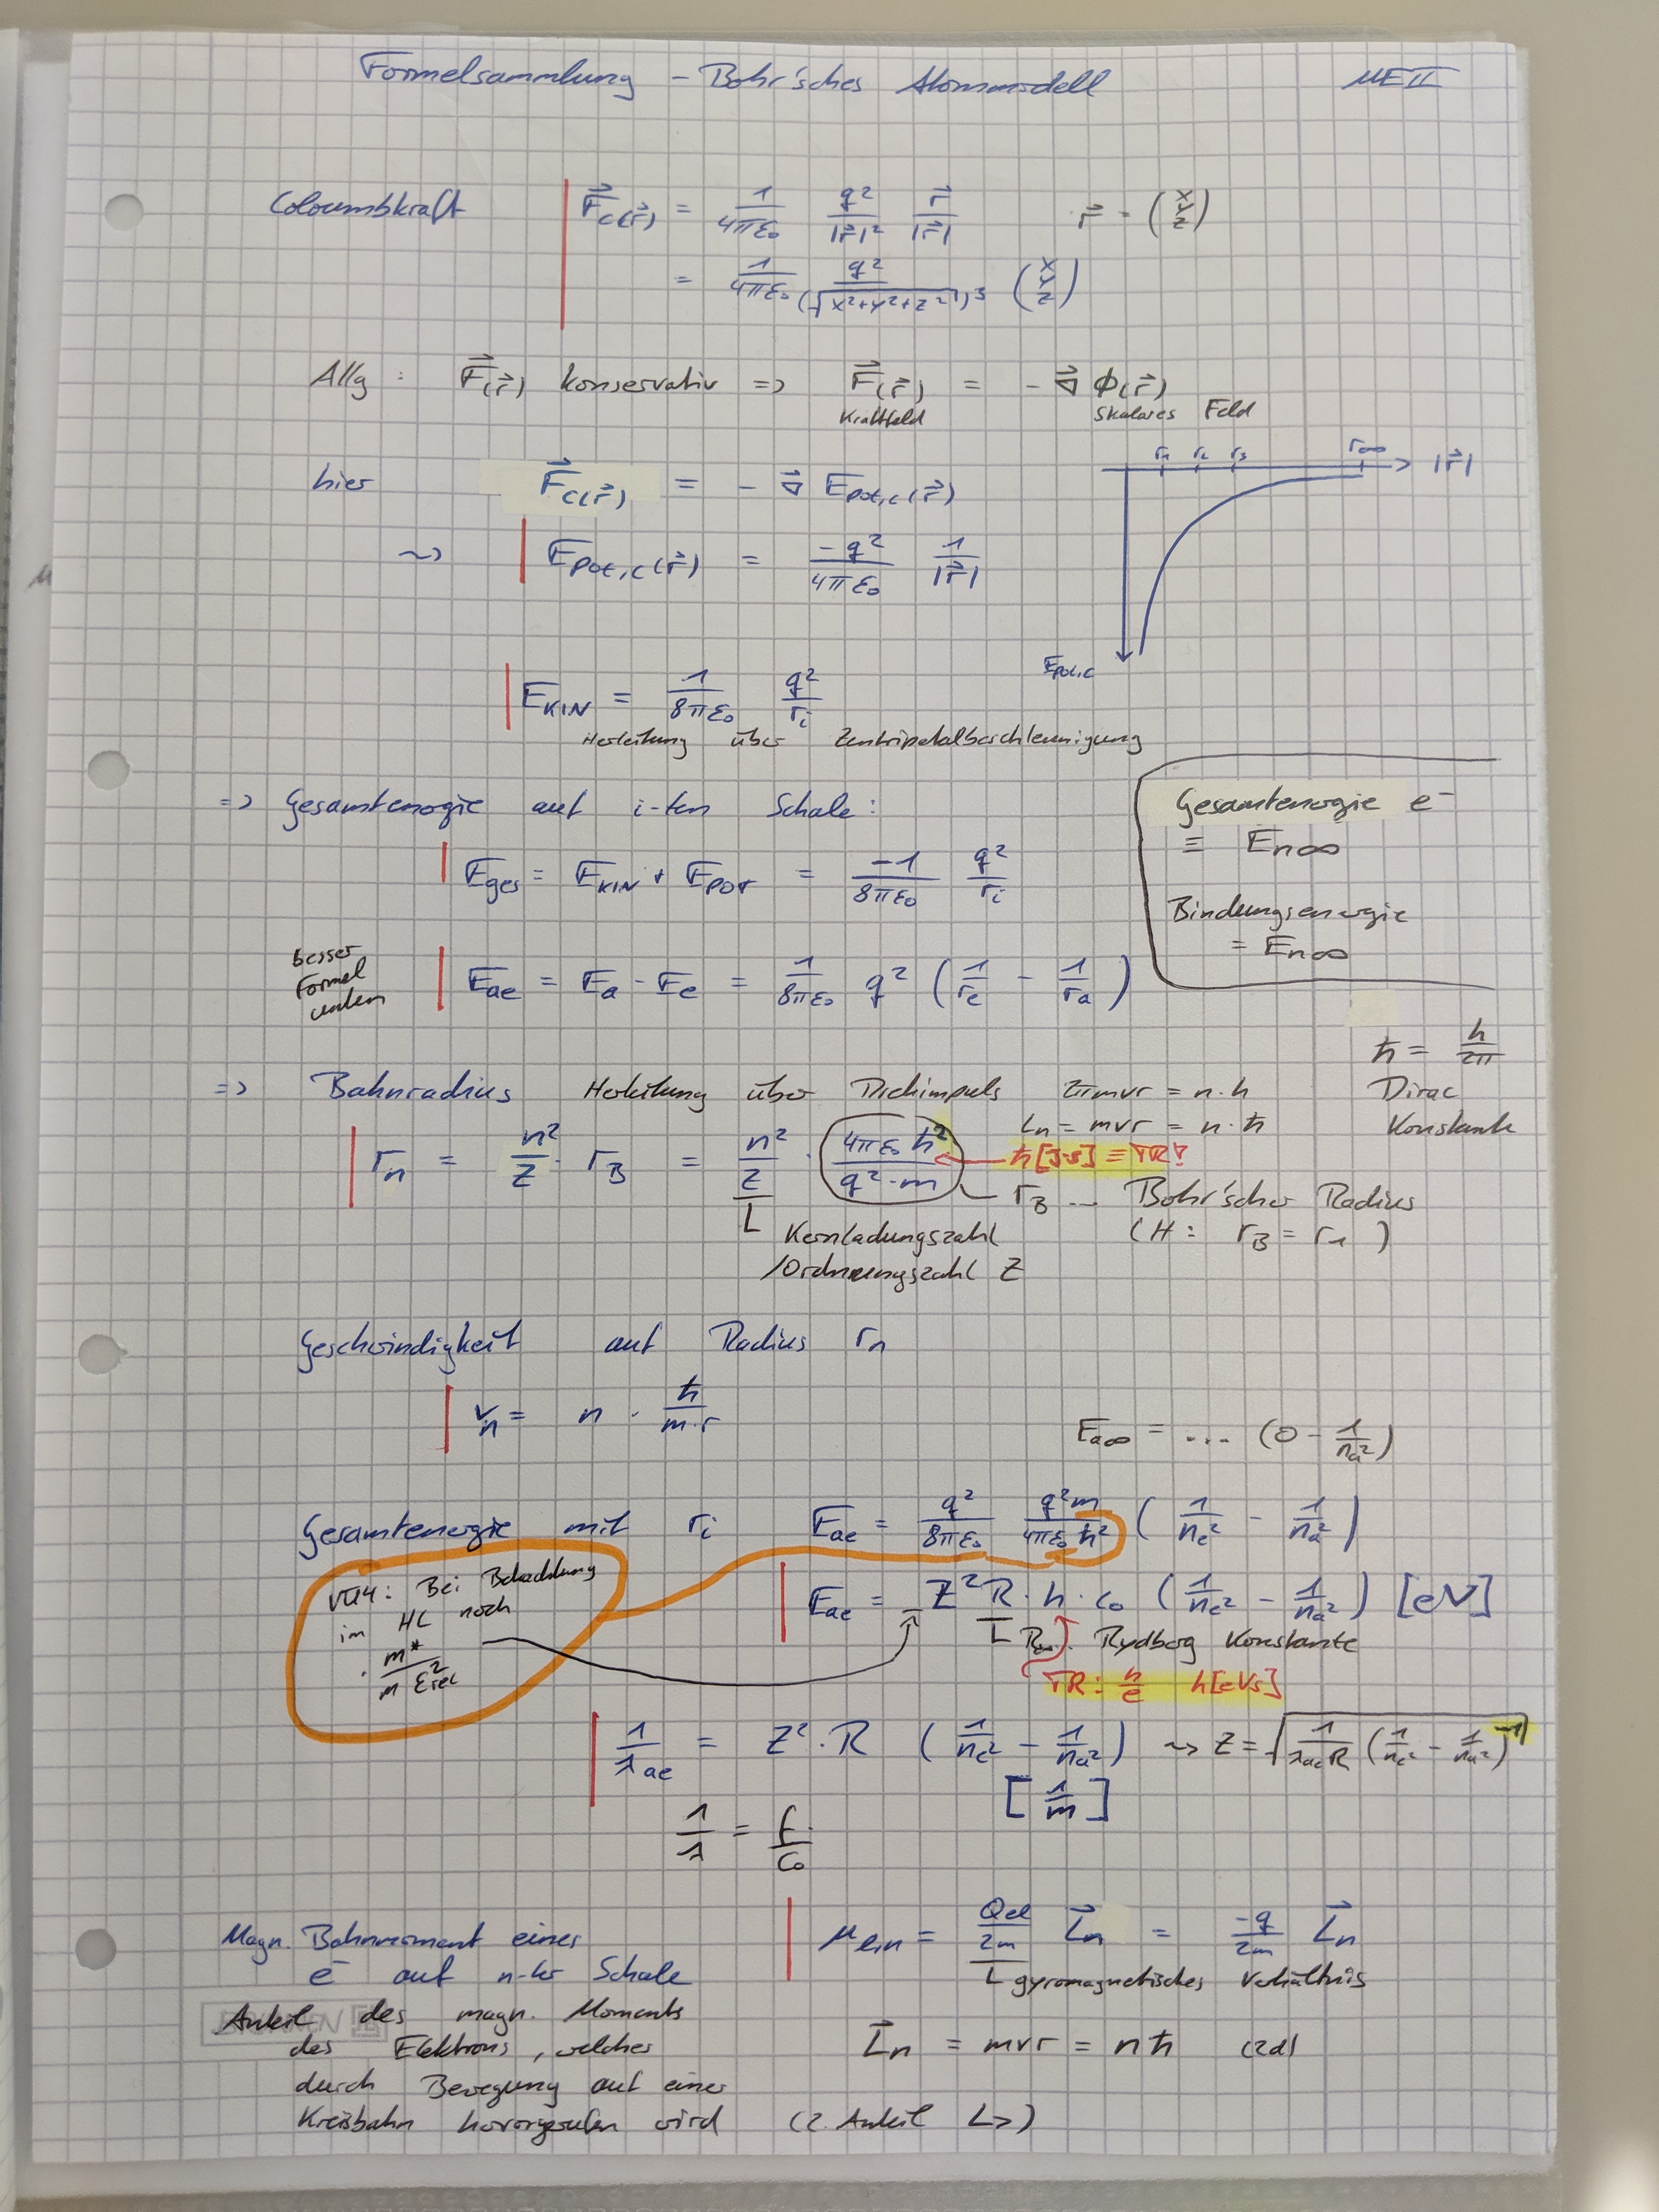 Formelsammlung - Bohr'sches Atommodell MEII
Coloumbkraft F⃗c(r⃗) = 1/(4πε₀) q²/|r⃗|² r⃗/|r⃗| r⃗ = (x y z)
= 1/(4πε₀) q²/(√(x²+y²+z²))³ (x y z)
Allg: F⃗(r⃗) konservativ => F⃗(r⃗) = - ∇⃗ Φ(r⃗)
Kraftfeld Skalares Feld
r₁ r₂ r₃ r∞ |r⃗|
hier F⃗c(r⃗) = - ∇⃗ Epot,c(r⃗)
~> Epot,c(r⃗) = -q²/(4πε₀) 1/|r⃗|
Epot,c
EKIN = 1/(8πε₀) q²/rᵢ
Herleitung über Zentripetalbeschleunigung
=> Gesamtenergie auf i-ten Schale:
Eges = EKIN + EPOT = -1/(8πε₀) q²/rᵢ
Gesamtenergie e⁻
≡ En∞
Bindungsenergie
= En∞
besser
Formel
unten
Eae = Ea - Ee = 1/(8πε₀) q² (1/re - 1/ra)
ħ = h/2π
Dirac
Konstante
=> Bahnradius Herleitung über Drehimpuls 2πmvr = n·h
Ln = mvr = n·ħ
rn = n²/Z · rB = n²/Z · 4πε₀ħ²/(q²·m)
ħ[J·s] ≡ TR!
rB ... Bohr'scher Radius
(H: rB = r₁)
Kernladungszahl
/Ordnungszahl Z
Geschwindigkeit auf Radius rn
vn = n · ħ/(m·r)
Ea∞ = ... (0 - 1/na²)
Gesamtenergie mit rᵢ Eae = q²/(8πε₀) q²m/(4πε₀ħ²) (1/ne² - 1/na²)
VU4: Bei Betrachtung
im HL noch
· m*/(m εrel²)
Eae = Z² R · h · c₀ (1/ne² - 1/na²) [eV]
R∞. Rydberg Konstante
TR: h/e h[eVs]
1/λae = Z² · R (1/ne² - 1/na²) ~> Z = √(1/(λae R) (1/ne² - 1/na²)⁻¹)
[1/m]
1/λ = f/c₀
Magn. Bahnmoment eines
e⁻ auf n-ter Schale
μe,n = Qel/2m L⃗n = -q/2m L⃗n
gyromagnetisches Verhältnis
Anteil des magn. Moments
des Elektrons, welches
durch Bewegung auf einer
Kreisbahn hervorgerufen wird (2. Anteil L>)
L⃗n = mvr = nħ (2d)